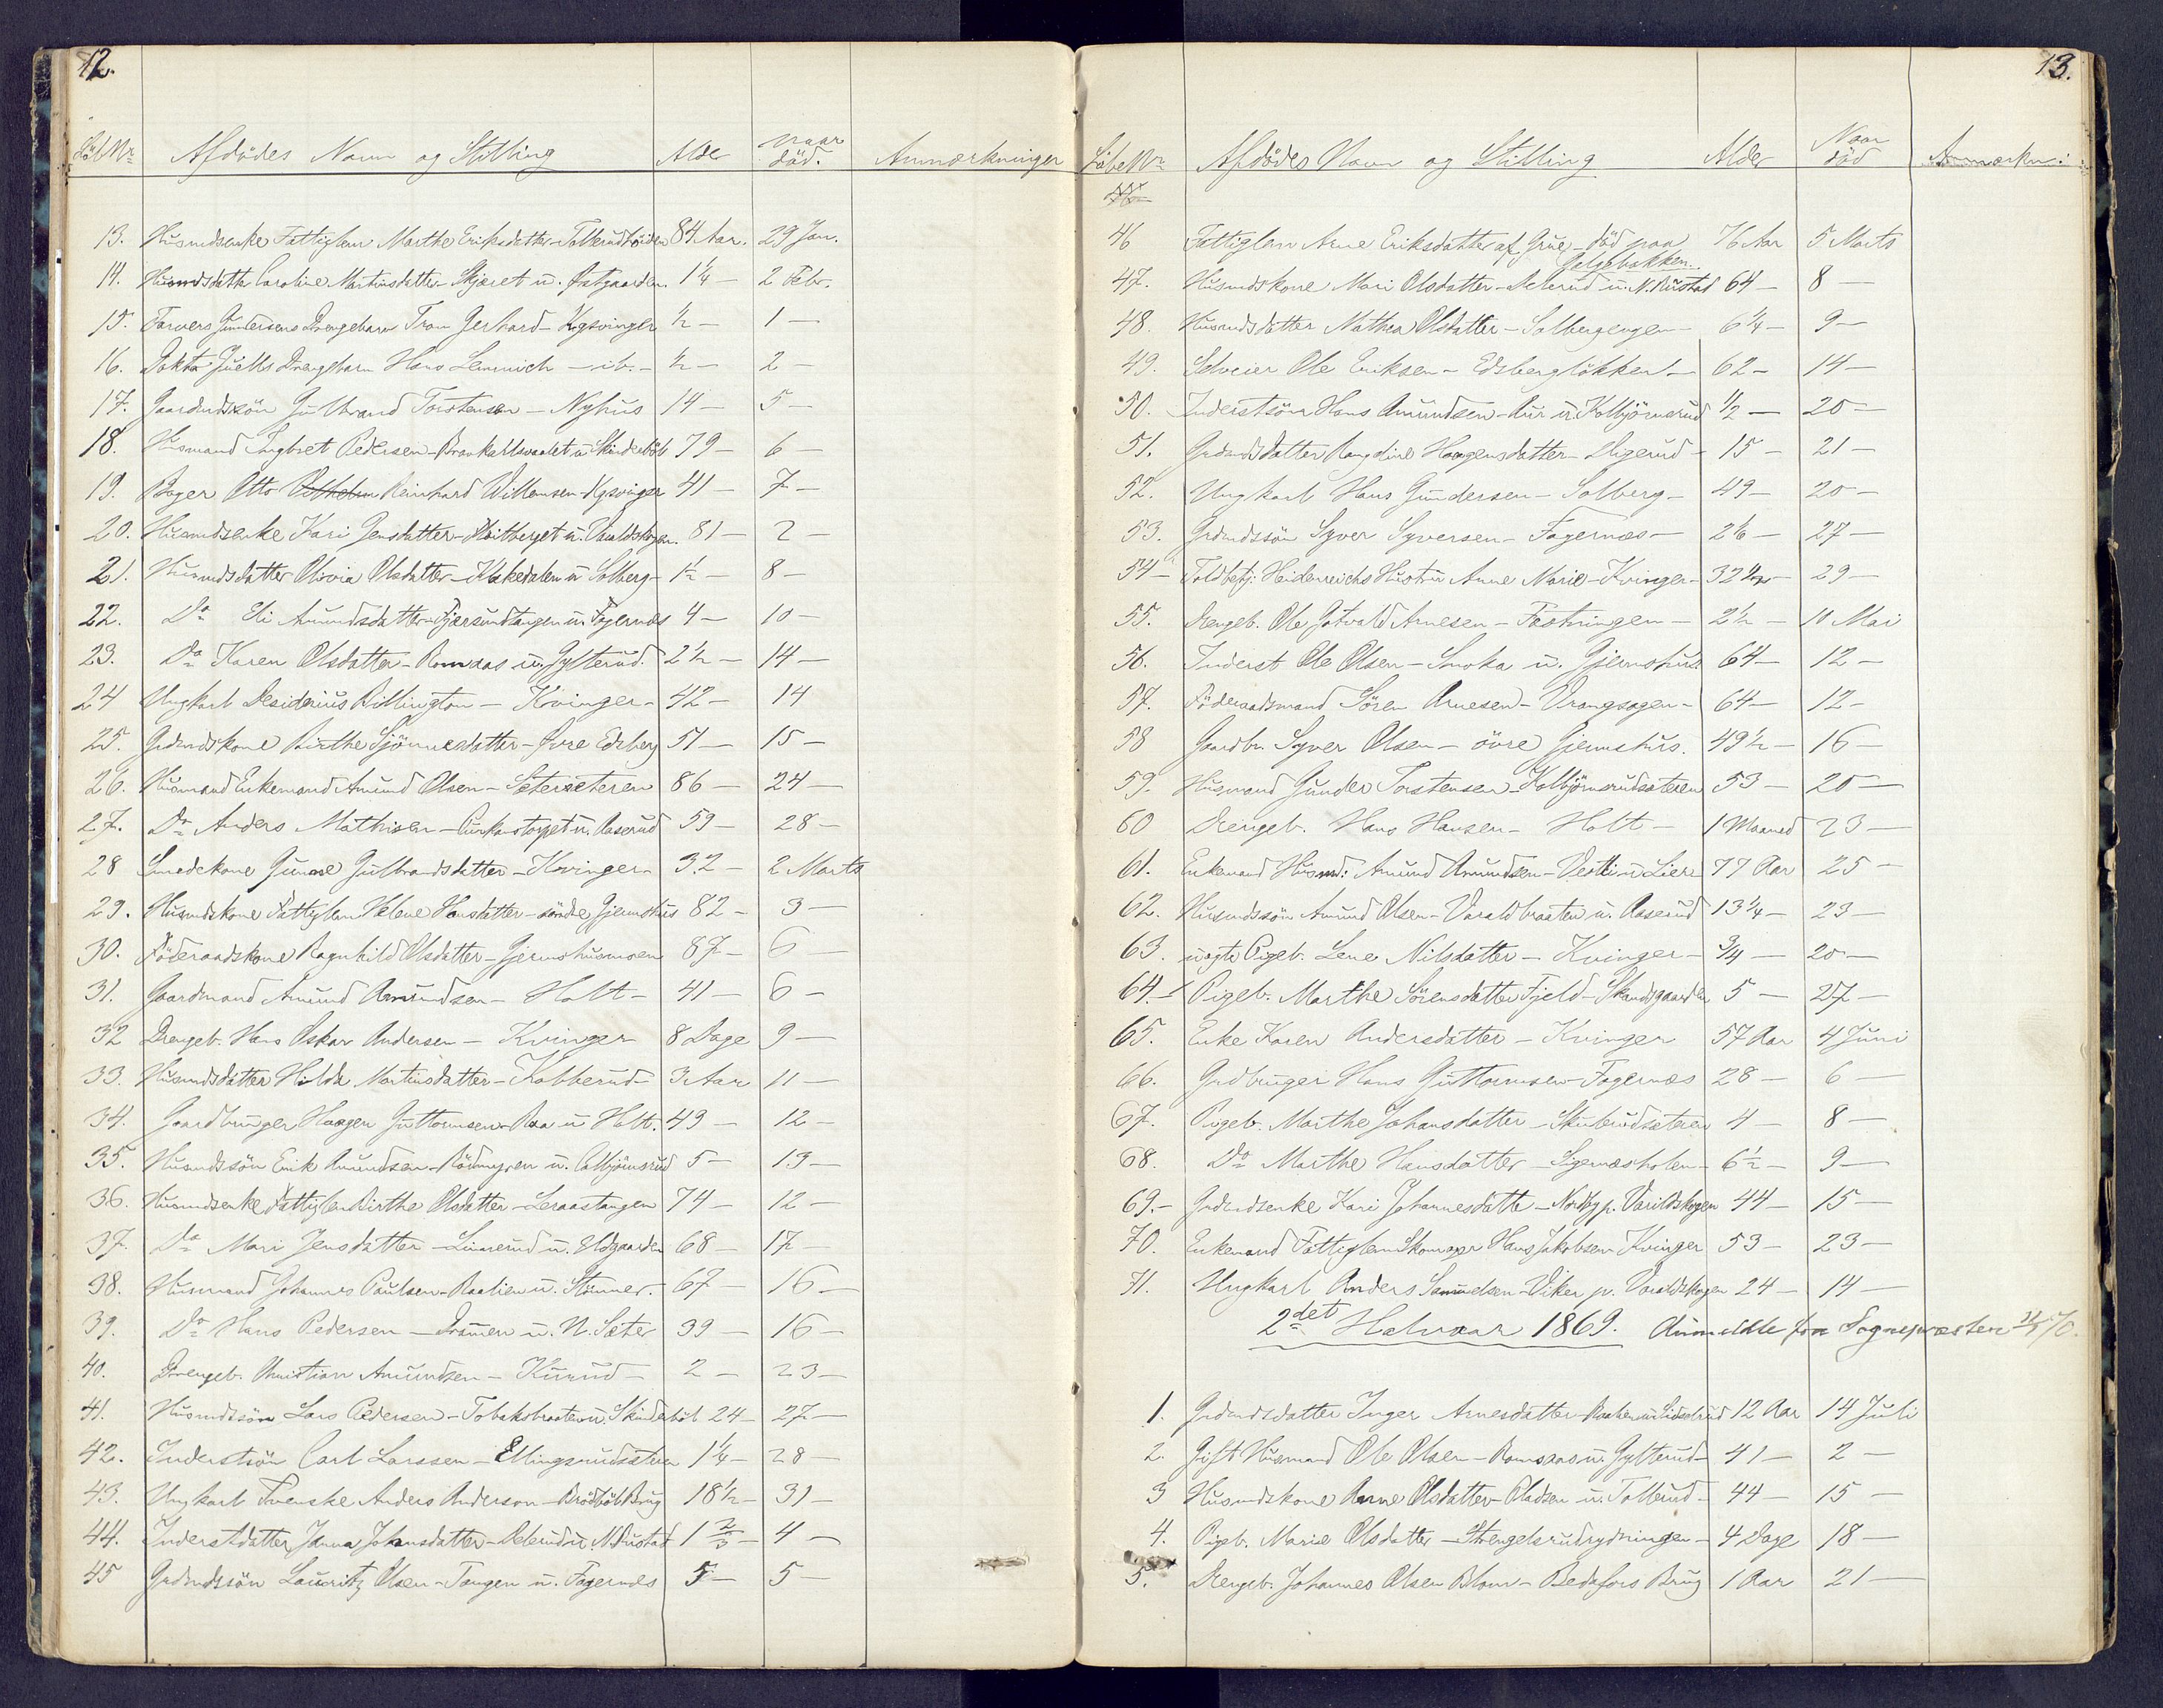 12.
Löb.Nr. Afdødes Navn og Stilling Alder Naar död. Anmærkninger
13. Husmdsenke Fattiglem Marthe Eriksdatter - Tollerudhöiden 84 Aar. 29 Jan.
14. Husmdsdatter Caroline Martinsdatter - Skjæret u. Østgaarden. 1 1/4 — 2 Febr.
15. Farvers Gundersens Drengebarn Gerhard - Kgsvinger 1/2 — 1 —
16. Doktor Juells Drengebarn Hans Lemmich — ib. — 1/2 — 2 —
17. Gaardmdssön Gulbrand Torstensen — Nyhus 14 — 5 —
18. Husmand Ingbret Pedersen - u Skinderböl 79 — 6 —
19. Bager Otto Reinhard Willemsen - Kgsvinger 41 — 7 —
20. Husmdsenke Kari Jensdatter - u. Varaldskogen. 81 — 2 —
21. Husmdsdatter Olivia Olsdatter - Klakedalen u Solberg - 1 1/2 — 8 —
22. Do Eli Amundsdatter - Tjersundtangen u. Fagernæs 4 — 10 —
23. Do Karen Olsdatter - Romsaas u. Gylterud. 2 1/2 — 14 —
24 Ungkarl Desiderius Billington — Kvinger - 42 — 14
25. Grdmdskone Birthe - Øvre Edsberg 51 — 15 —
26. Husmand Enkemand Amund Olsen - Sæterseteren 86 — 24 —
27. Do Anders Mathisen - u. Aaserud 59 — 28 —
28 Smedekone Gulbrandsdatter - Kvinger - 32 — 2 Marts
29. Husmdskone Fattiglem Helene Hansdatter - söndre Gjermshus 82 — 3 —
30. Föderaadskone Ragnhild Olsdatter - Gjermshusmoen 87 — 6 —
31. Gaardmand Amund Amundsen - Holt - 41 — 6 —
32 Drengeb. Hans Oskar Andersen — Kvinger 8 Dage 9 —
33. Husmdsdatter Hilda Martinsdatter - Kobberud - 3 Aar 11 —
34. Gaardbruger Haagen Guttormsen - Raa u Holt. 49 — 12 —
35. Husmdssön Erik Amundsen - Rödmyren u. Colbjörnsrud 5 — 13 —
36. Husmdsenke Fattiglem Birthe Olsdatter - Leraastangen 74 — 12 —
37. Do Mari Jensdatter - Linnerud u. Udgaarden 68 — 17 —
38. Husmand Johannes Paulsen - Raalien u. Stömner. 67 — 16 —
39. Do Hans Pedersen - u. N. Sæter 39 — 16 —
40. Drengeb. Christian Amundsen - Kurud - 2 — 23 —
41. Husmdssön Lars Pedersen - Tobaksbraaten u. Skinderböl 24 — 27 —
42. Inderstsön Carl Larssen - Ellingsrudsæteren 1 1/4 — 28 —
43. Ungkarl Svenske Anders Anderson - Brödböl Brug 18 1/2 — 31 —
44. Inderstdatter Janna Johansdatter - u N. Rustad 1 2/3 — 4 —
45 Grdmdssön Lauritz Olsen - Tangen u. Fagernæs 5 — 5 —
13.
LöbeNr. Afdødes Navn og Stilling Alder Naar död Anmærkn:
46 Fattiglem Arne Eriksdatter af Grue - död paa Galgebakken. 76 Aar 5 Marts
47. Husmdskone Mari Olsdatter - u. N. Rustad 64 — 8 —
48. Husmdsdatter Mathea Olsdatter - Solbergengen - 6 1/4 — 9 —
49. Selveier Ole Eriksen - Edsberglökken — 62 — 14 —
50. Inderstsön Hans Amundsen - Aur u. Kolbjörnsrud 1/2 — 20 —
51. Grdmdsdatter Haagensdatter - Digerud - 15 — 21 —
52. Ungkarl Hans Gundersen - Solberg - 49 — 20 —
53. Grdmdssön Syver Syversen - Fagernæs — 2 1/2 — 27 —
54 — Toldbetj: Heidenreichs Hustru Anne Marie - Kvinger - 32 — 29 —
55. Drengeb. Ole Gotvald Arnesen - Fæstningen — 2 1/2 — 10 Mai
56. Inderst Ole Olsen - Smoka u. Gjermshus 64 — 12 —
57. Föderaadsmand Sören Arnesen - Vrangsagen - 64 — 12 —
58 Gaardbr. Syver Olsen - övre Gjermshus. 49 1/2 — 16 —
59. Husmand Gunder Torstensen - Kolbjörnsrudsæteren 53 — 20 —
60 Drengeb. Hans Hansen - Holt — 1 Maaned 23 —
61. Enkemand Husmd: Amund Amundsen - u Lier 77 Aar 25 —
62. Husmdssön Amund Olsen - Varaldbraaten u. Aaserud 13 1/4 — 23 —
63. uægte Pigeb. Lene Nilsdatter - Kvinger - 3/4 — 20 —
64. Pigeb. Marthe Sörensdatter Fjeld - Skandsgaarden 5 — 27 —
65. Enke Karen Andersdatter - Kvinger 57 Aar 4 Juni
66. Grdbruger Hans Guttormsen - Fagernæs 28 — 6 —
67. Pigeb. Marthe Johansdatter - Skulerudsæteren 4 — 8 —
68. Do Marthe Hansdatter - Sigernæsholen - 6 1/2 — 9 —
69. — Grdmdsenke Kari Johannesdatter - Nordby p. Varildskogen 44 — 15 —
70. Enkemand Fattiglem Skomager Hans Jakobsen Kvinger 53 — 23 —
71. Ungkarl Anders Samuelsen - Viker p. Varaldskogen 24 — 14 —
2det Halvaar 1869. Anmeldte fra Sognepræsten /70.
1. Grdmdsdatter Inger Arnesdatter - 12 Aar 14 Juli
2. Gift Husmand Ole Olsen - Romsaas u. Gylterud - 41 — 2 —
3 Husmdskone Anne Olsdatter - Pladsen u. Tollerud - 44 — 15 —
4. Pigeb. Marie Olsdatter - Strengelsrudrydningen - 4 Dage 18 —
5. Drengeb. Johannes Olsen Blom - Bedafors Brug 1 Aar 21 —